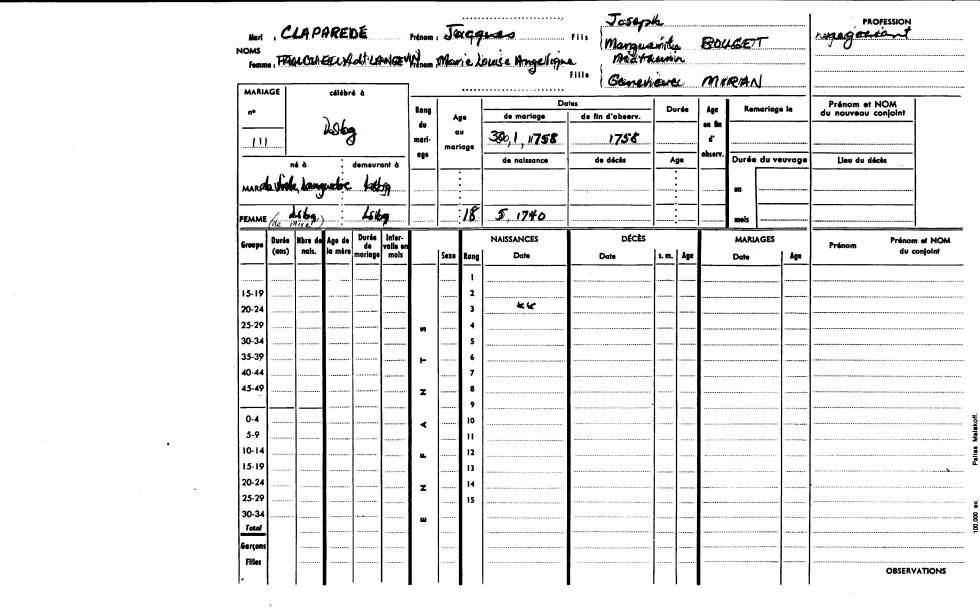 Mari : CLAPAREDE Prénom : Jacques Fils Joseph PROFESSION
Marguerite BOUGET negociant
NOMS
Femme : Prénom : Marie Louise Angelique Fille Mathurin
Genevieve MIRAN
MARIAGE célébré à
n° 111 Lsbg
Rang du mariage
Age au mariage
Dates
de mariage de fin d'observ.
30, 1, 1758 1758
de naissance de décès
Durée
Age
Age en fin d' observ.
Remariage le
Durée du veuvage
en
mois
Prénom et NOM du nouveau conjoint
Lieu du décès
né à : demeurant à
MARI de Languedoc Lsbg
FEMME (de mire) Lsbg : Lsbg 18 5, 1740
Groupe Durée (ans) Nbre de nais. Age de la mère Durée de mariage Intervalle en mois
ENFANTS
Sexe Rang
NAISSANCES Date
DÉCÈS Date s. m. Age
MARIAGES Date Age
Prénom Prénom et NOM du conjoint
1
15-19 2
20-24 3
25-29 4
30-34 5
35-39 6
40-44 7
45-49 8
9
0-4 10
5-9 11
10-14 12
15-19 13
20-24 14
25-29 15
30-34
Total
Garçons
Filles
OBSERVATIONS
100.000 ex. Pailles Malakoff.